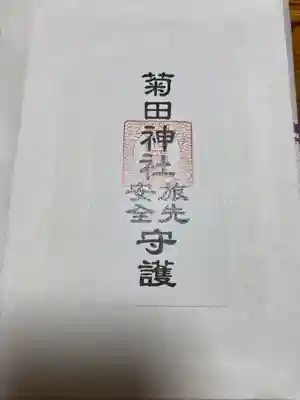 菊田神社
旅先
安全
守護